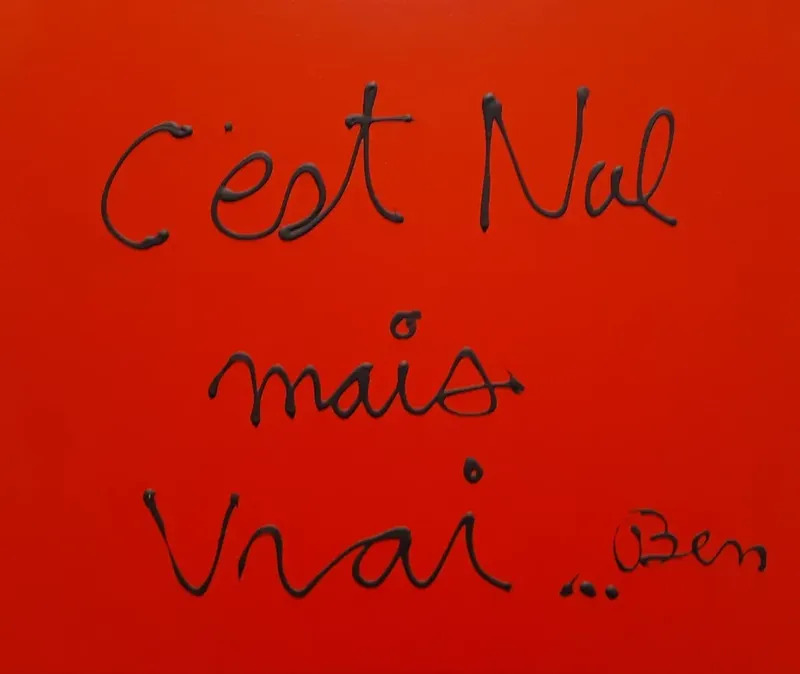 C'est Nul
mais
Vrai ... Ben